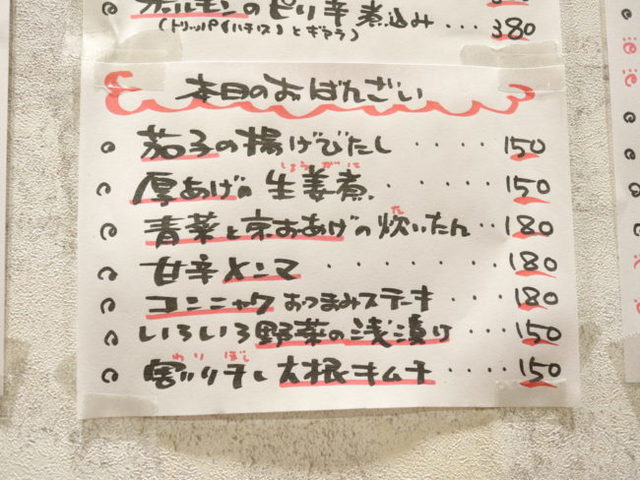 ホルモンのピリ辛煮込み・・・380
(トリッパ(ハチノス)とギアラ)
本日のおばんざい
茄子の揚げびたし・・・・150
しょうが に
厚あげの生姜煮・・・・・150
た
青菜と京おあげの炊いたん・・180
甘辛メンマ・・・・・・・180
コンニャクおつまみステーキ・・・180
いろいろ野菜の浅漬け・・・150
わり ぼし
割り干し大根キムチ・・・150